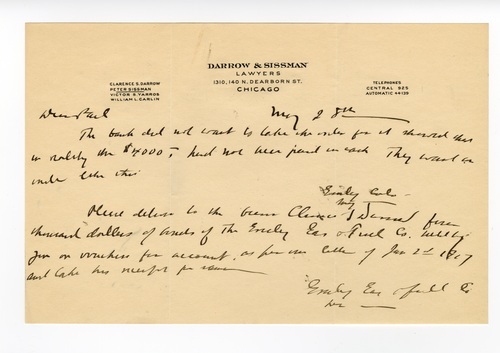 DARROW & SISSMAN
LAWYERS
1310, 140 N. DEARBORN ST.
CHICAGO
CLARENCE S. DARROW
PETER SISSMAN
VICTOR S. YARROS
WILLIAM L. CARLIN
TELEPHONES
CENTRAL 925
AUTOMATIC 44139
Dear Paul
May 28th
The bank did not want to take the order for it showed that
in reality the $4000 had not been paid in cash. They want an
order like this
Greeley
Please deliver to the bearer Clarence S Darrow four
thousand dollars of bonds of the Greeley Gas & Fuel Co.
you on vouchers for account, as per our letter of Jan 2nd 1917
and take his receipt for same
Greeley Gas & Fuel Co